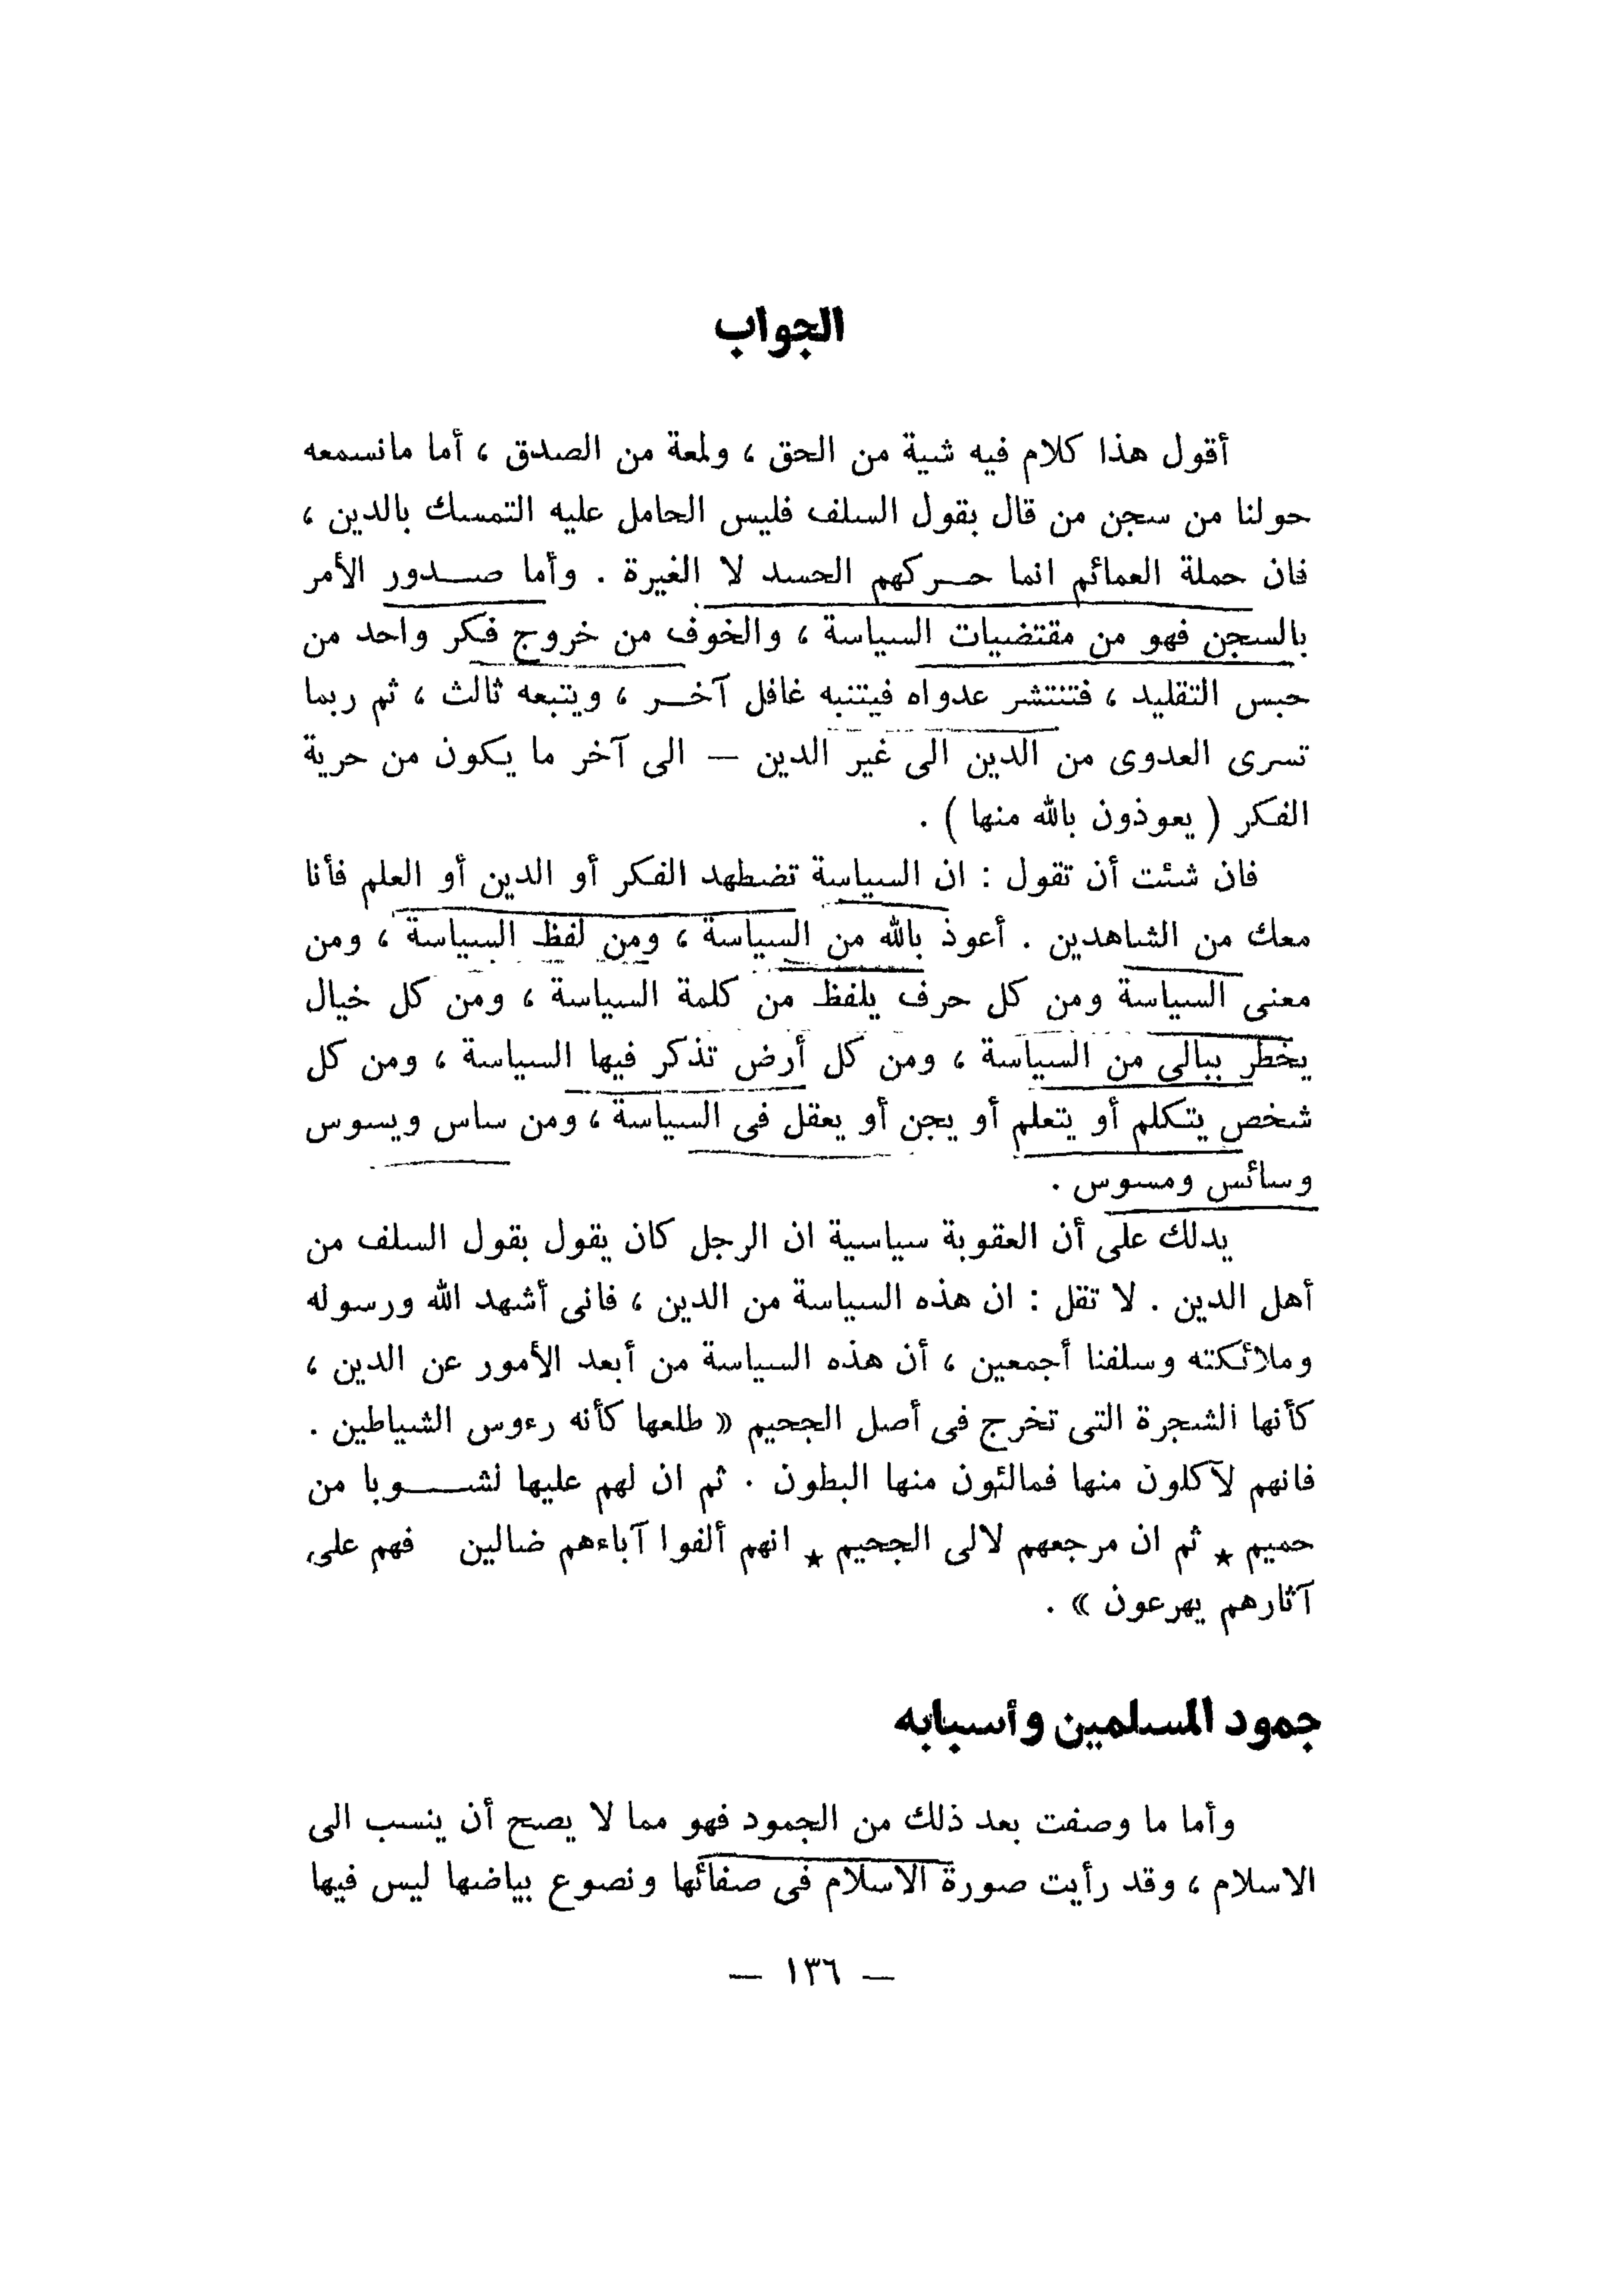 الجواب
أقول هذا كلام فيه شية من الحق ، ولمعة من الصدق ، أما مانسمعه
حولنا من سجن من قال بقول السلف فليس الحامل عليه التمسك بالدين ،
فان حملة العمائم انما حـركهم الحسد لا الغيرة . وأما صـدور الأمر
بالسجن فهو من مقتضيات السياسة ، والخوف من خروج فكر واحد من
حبس التقليد ، فتنتشر عدواه فيتنبه غافل آخـر ، ويتبعه ثالث ، ثم ربما
تسرى العدوى من الدين الى غير الدين — الى آخر ما يكون من حرية
الفكر ( يعوذون بالله منها ) .
فان شئت أن تقول : ان السياسة تضطهد الفكر أو الدين أو العلم فأنا
معك من الشاهدين . أعوذ بالله من السياسة ، ومن لفظ السياسة ، ومن
معنى السياسة ومن كل حرف يلفظ من كلمة السياسة ، ومن كل خيال
يخطر ببالى من السياسة ، ومن كل أرض تذكر فيها السياسة ، ومن كل
شخص يتكلم أو يتعلم أو يجن أو يعقل فى السياسة ، ومن ساس ويسوس
وسائس ومسوس .
يدلك على أن العقوبة سياسية ان الرجل كان يقول بقول السلف من
أهل الدين . لا تقل : ان هذه السياسة من الدين ، فانى أشهد الله ورسوله
وملائكته وسلفنا أجمعين ، أن هذه السياسة من أبعد الأمور عن الدين ،
كأنها الشجرة التى تخرج فى أصل الجحيم « طلعها كأنه رءوس الشياطين .
فانهم لآكلون منها فمالئون منها البطون . ثم ان لهم عليها لشـــوبا من
حميم ★ ثم ان مرجعهم لالى الجحيم ★ انهم ألفوا آباءهم ضالين فهم على
آثارهم يهرعون » .
جمود المسلمين وأسبابه
وأما ما وصفت بعد ذلك من الجمود فهو مما لا يصح أن ينسب الى
الاسلام ، وقد رأيت صورة الاسلام فى صفائها ونصوع بياضها ليس فيها
— ١٣٦ —